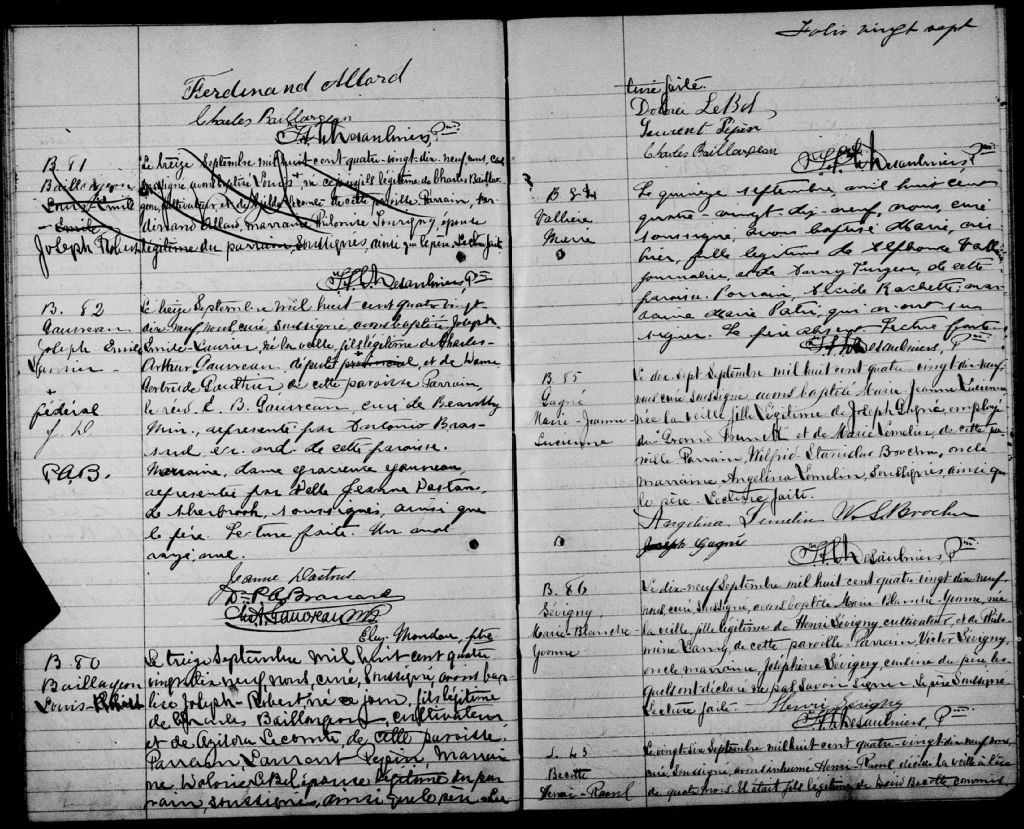 Ferdinand Allard
Charles Baillargeon
F. X. L. Desaulniers, Ptre
B. 81
Baillargeon
Louis Emile
Joseph Robert
Le treize Septembre mil huit cent quatre-vingt-dix-neuf, nous, curé
soussigné avons baptisé Louis né ce jour fils légitime de Charles Baillar-
geon, cultivateur et de Lecomte de cette paroisse Parrain, Fer-
dinand Allard, marraine Philomise Sévigny, épouse
légitime du parrain, soussignés, ainsi que le père. Lecture faite.
Desaulniers, Ptre
B. 82
Gauvreau
Joseph Emile
Laurier
Le treize Septembre mil huit cent quatre vingt
dix neuf, nous, curé, soussigné avons baptisé Joseph
Emile-Laurier, né la veille, fils légitime de Charles-
Arthur Gauvreau, député provincial, et de Dame
Gertrude Gauthier de cette paroisse Parrain,
le révd. L. B. Gauvreau, curé de
+
fédéral
représenté par Antonio Bras-
sard de cette paroisse.
P.A.B.
Marraine, dame Gracieuse Gauvreau,
représentée par Delle Jeanne
de Sherbrook, soussignés, ainsi que
le père. Lecture faite. Un mot
rayé nul.
Jeanne
Dr P A Brassard
Chs A Gauvreau MP
Elz. Mondor, ptre
B. 80
Baillargeon
Louis-Robert
Le treize Septembre mil huit cent quatre
vingt dix neuf nous, curé, soussigné avons bap-
tisé Joseph-Robert, né ce jour, fils légitime
de Charles Baillargeon, cultivateur
et de Azilda Lecomte, de cette paroisse.
Parrain Laurent Pepin, Marrai-
ne Le Bel, épouse légitime du par-
rain, soussignés, ainsi que le père. Lec
Folio vingt sept
ture faite.
Le Bel
Laurent Pépin
Charles Baillargeon
Desaulniers Ptre
B 84
Vallière
Marie
Le quinze septembre mil huit cent
quatre-vingt-dix-neuf, nous, curé
soussigné, avons baptisé Marie, née
hier, fille légitime de Alphonse
journalier, et de Fanny Turgeon, de cette
paroisse. Parrain, Alcide Rochette, mar-
raine Marie Patri, qui n'ont su
signer. Le père absent. Lecture faite.
Desaulniers, Ptre
B. 85
Gagné
Marie-Jeanne-
Lucienne
Le dix sept Septembre mil huit cent quatre vingt dix neuf
nous curé soussigné avons baptisé Marie Jeanne Lucienne
née la veille fille légitime de Joseph Gagné employé
du Grand Tronc et de Marie Lemelin, de cette pa-
roisse Parrain, Wilfrid Stanislas Brochu, oncle
marraine Angelina Lemelin, soussignés ainsi que
le père. Lecture faite.
Angelina Lemelin W. S. Brochu
Joseph Gagné
Desaulniers Ptre
B. 86
Sévigny
Marie-Blanche
Yvonne
Le dix-neuf Septembre mil huit cent quatre vingt dix neuf
nous, curé, soussigné, avons baptisé Marie Blanche Yvonne, née
la veille, fille légitime de Henri Sévigny cultivateur, et de Philo-
mène de cette paroisse. Parrain, Victor Sévigny,
oncle marraine, Joséphine Sévigny, cousine du père les-
quels ont déclaré ne pas savoir signer. Le père soussigné
Lecture faite. Henri Sévigny
Desaulniers, Ptre
S. 43
Becotte
Henri-Raoul
Le vingt-six Septembre mil huit cent quatre-vingt dix-neuf, nous,
curé, soussigné, avons inhumé Henri-Raoul décédé la veille à l'âge
de quatre mois. Il était fils légitime de David Becotte, commis